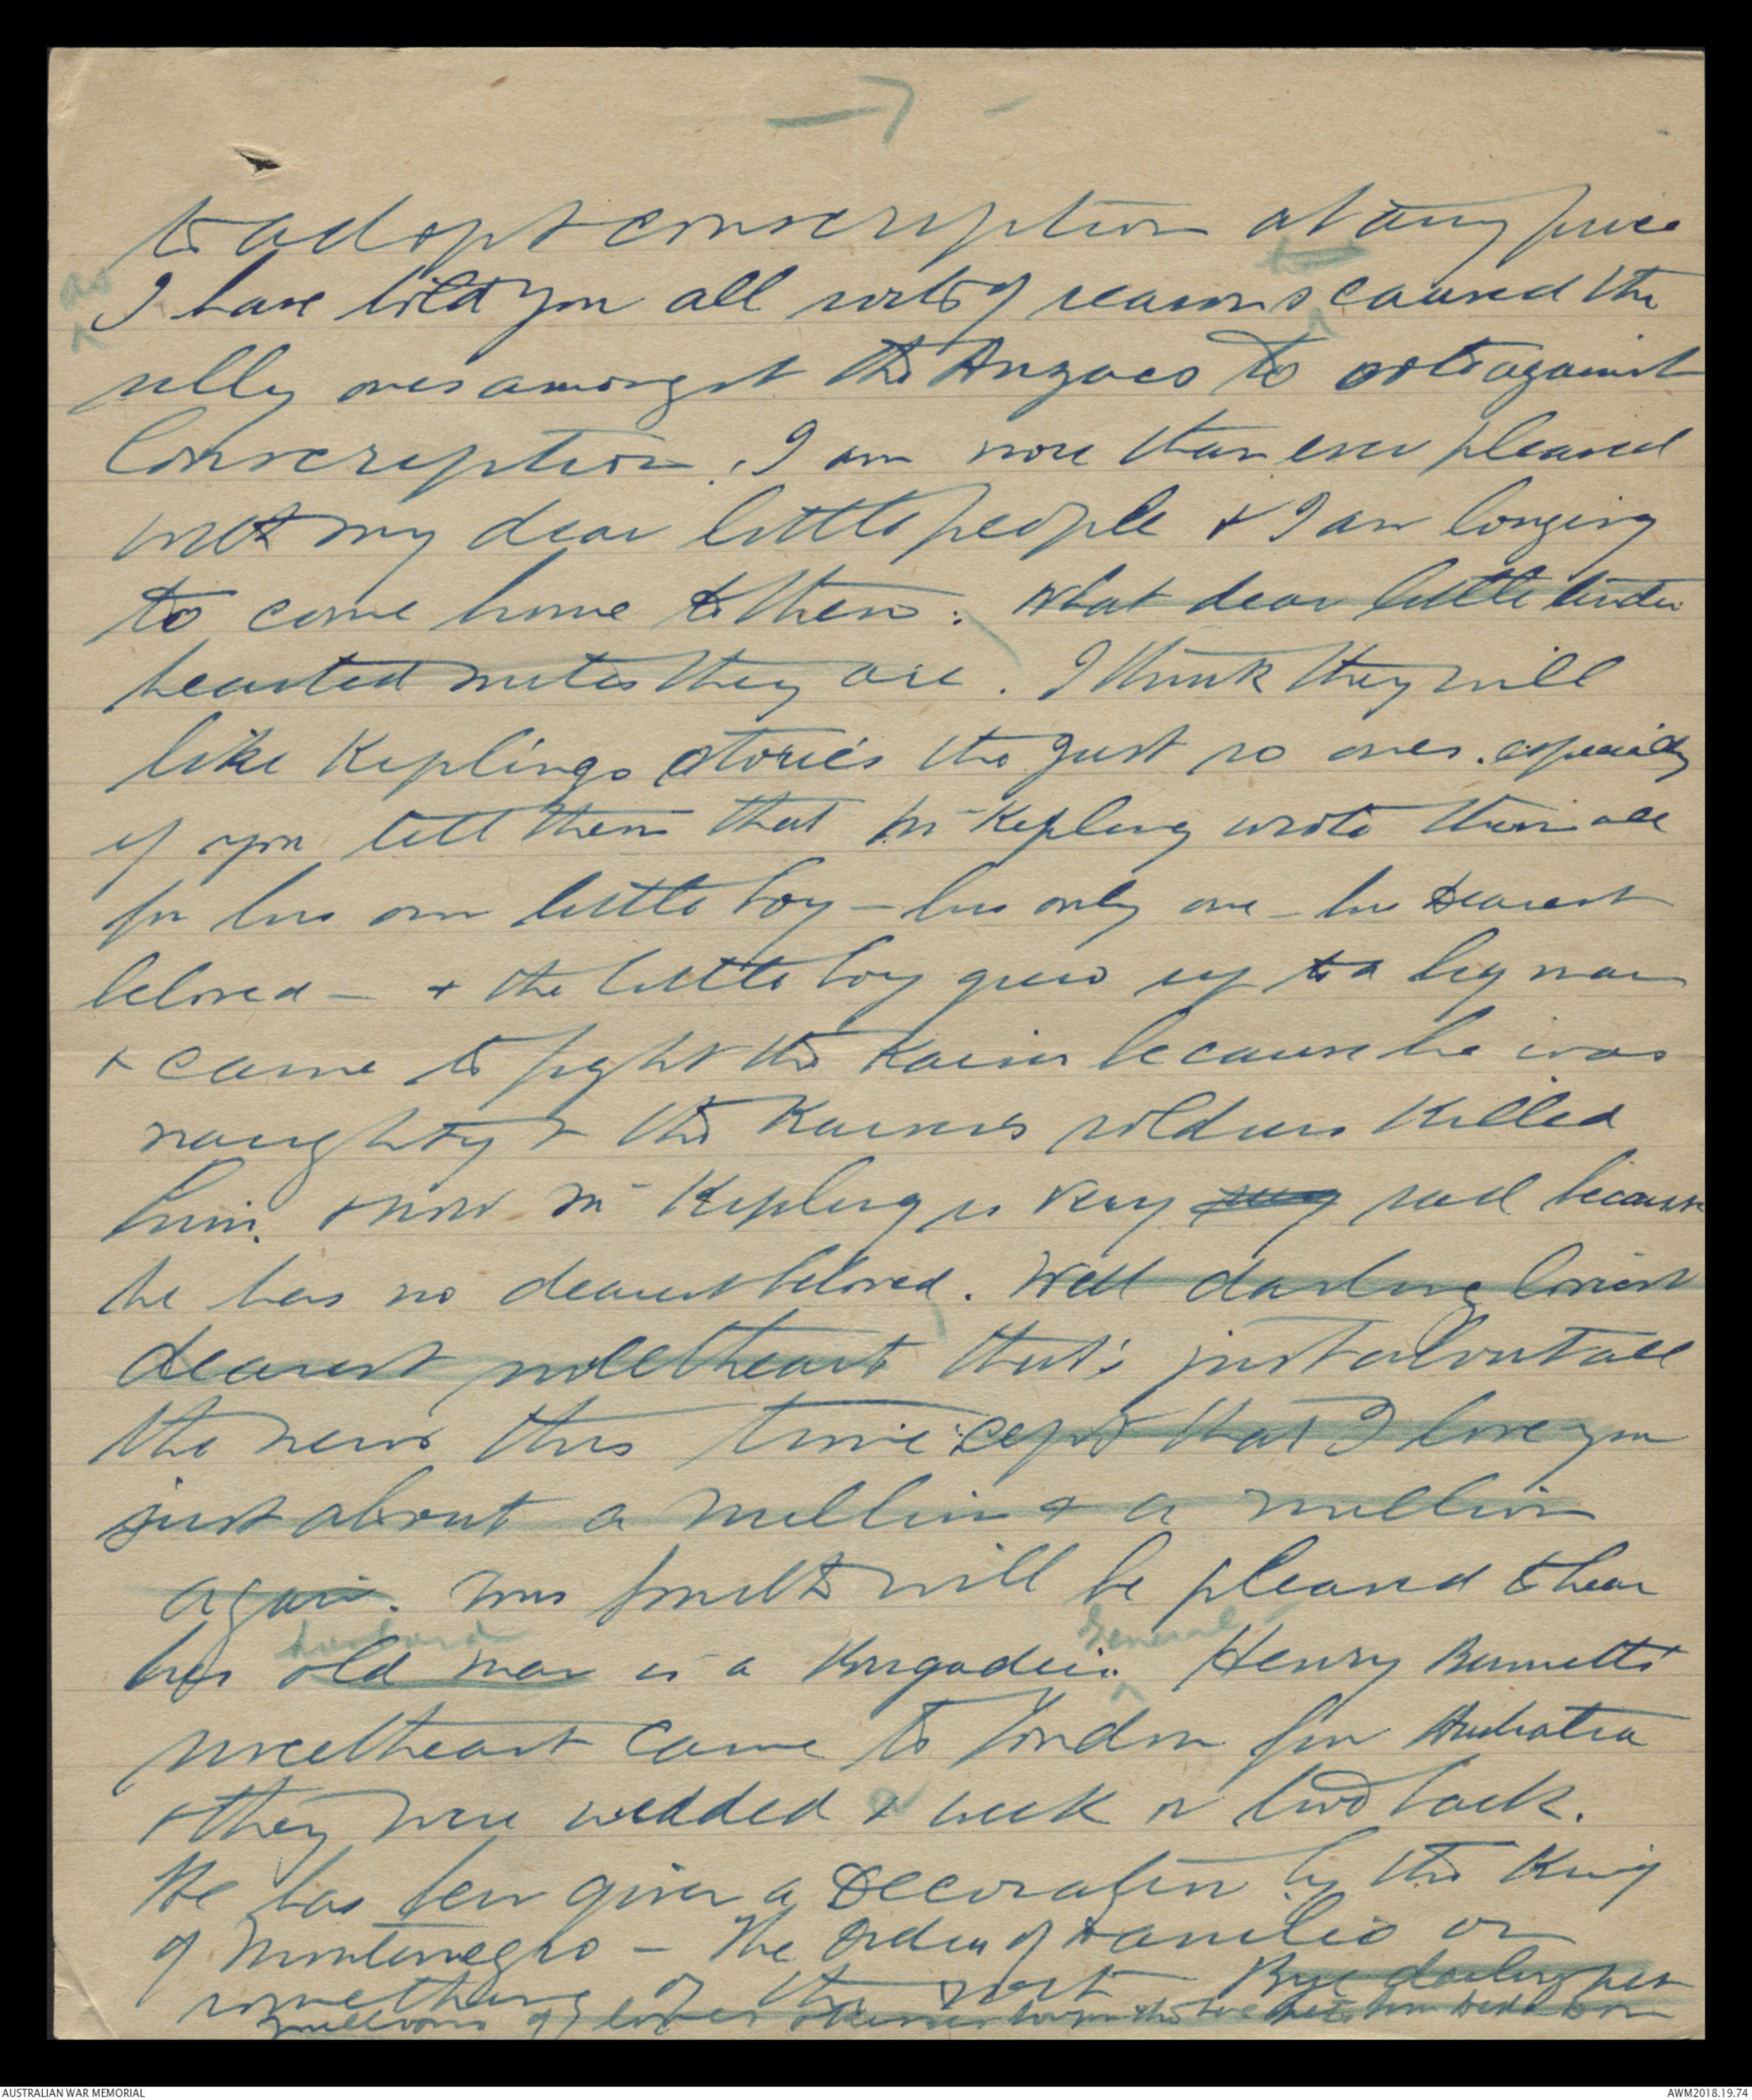 to adopt conscription at any price
as
had
I have told you all sorts of reasons caused the
silly ones amongst the Anzacs to vote against
Conscription. I am more than ever pleased
with my dear little people & I am longing
to come home to them. What dear little tender
hearted mites they are. I think they will
like Keplings stories the Just so ones. especially
if you tell them that Mr Kepling wrote them all
for his own little boy - his only one - his dearest
beloved - & the little boy grew up to a big man
& came to fight the Kaiser because he was
naughty & the Kaisers soldiers killed
him. & now Mr Kepling is very sad because
he has no dearest beloved. Well darling loviest
dearest sweetheart that's just about all
the news this time 'cept that I love you
just about a million & a million
again. Mrs Smith will be pleased to hear
husband General
her old man is a Brigadier. Henry Bennetts
sweetheart came to London from Australia
& they were wedded a week or two back.
He has been given a Decoration by the King
of Montenegro - The Order of Danilio or
something of the sort Bye darling
millions of loves & kisses to you & the two from Dadda